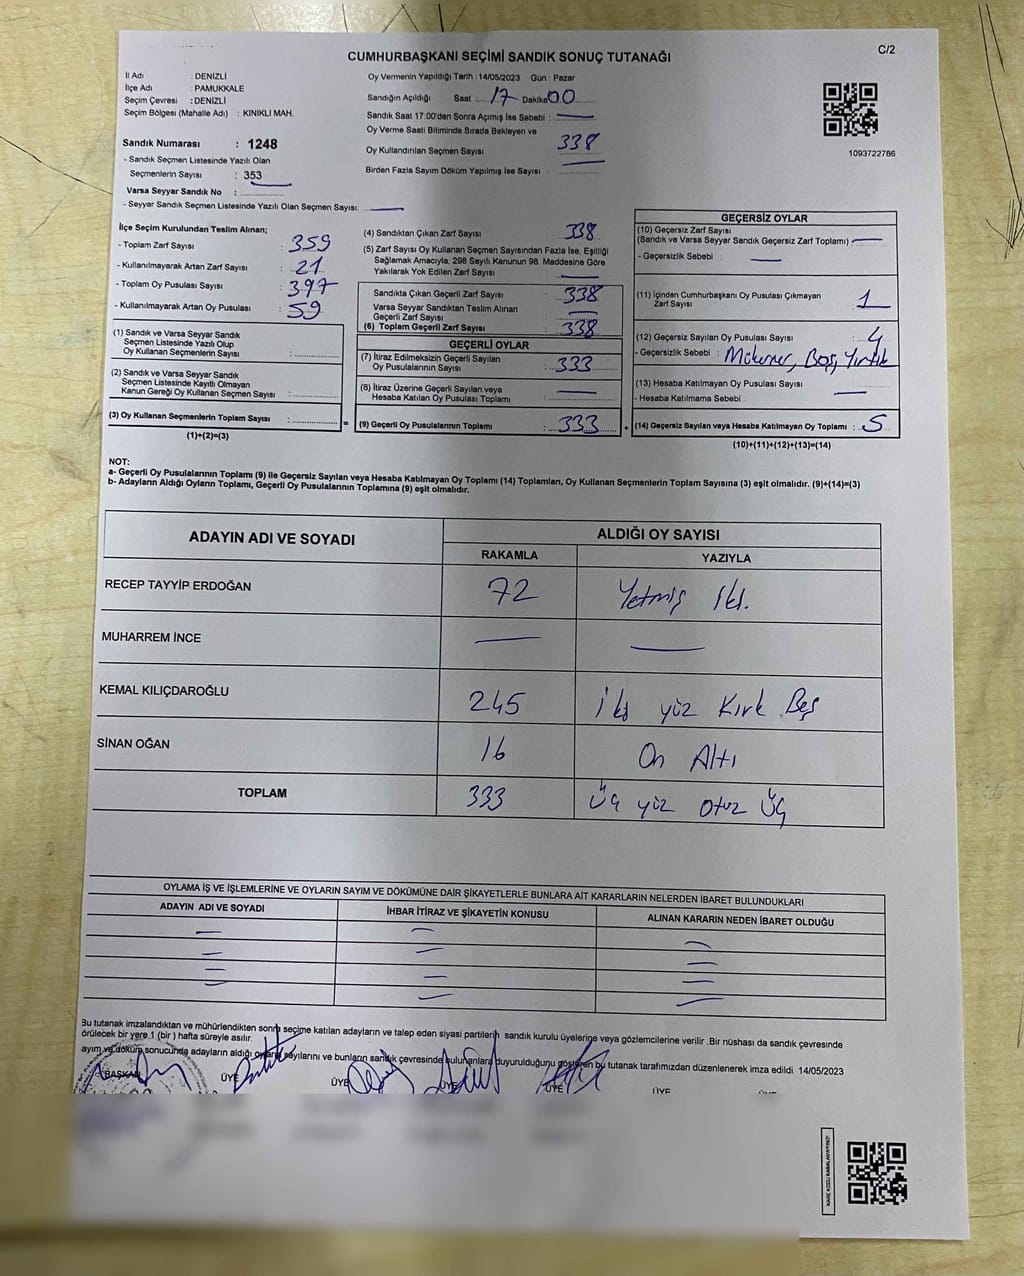 C/2
CUMHURBAŞKANI SEÇİMİ SANDIK SONUÇ TUTANAĞI
İl Adı : DENİZLİ
İlçe Adı : PAMUKKALE
Seçim Çevresi : DENİZLİ
Seçim Bölgesi (Mahalle Adı) : KINIKLI MAH.
Sandık Numarası : 1248
- Sandık Seçmen Listesinde Yazılı Olan
Seçmenlerin Sayısı : 353
Varsa Seyyar Sandık No :
- Seyyar Sandık Seçmen Listesinde Yazılı Olan Seçmen Sayısı:
Oy Vermenin Yapıldığı Tarih : 14/05/2023 Gün : Pazar
Sandığın Açıldığı Saat 17 Dakika 00
Sandık Saat 17:00'den Sonra Açımış İse Sebebi :
Oy Verme Saati Bitiminde Sırada Bekleyen ve
Oy Kullandırılan Seçmen Sayısı 338
Birden Fazla Sayım Döküm Yapılmış İse Sayısı :
1093722786
İlçe Seçim Kurulundan Teslim Alınan;
- Toplam Zarf Sayısı : 359
- Kullanılmayarak Artan Zarf Sayısı : 21
- Toplam Oy Pusulası Sayısı : 397
- Kullanılmayarak Artan Oy Pusulası : 59
(1) Sandık ve Varsa Seyyar Sandık
Seçmen Listesinde Yazılı Olup
Oy Kullanan Seçmenlerin Sayısı :
(2) Sandık ve Varsa Seyyar Sandık
Seçmen Listesinde Kayıtlı Olmayan
Kanun Gereği Oy Kullanan Seçmen Sayısı :
(3) Oy Kullanan Seçmenlerin Toplam Sayısı : =
(1)+(2)=(3)
(4) Sandıktan Çıkan Zarf Sayısı : 338
(5) Zarf Sayısı Oy Kullanan Seçmen Sayısından Fazla İse, Eşitliği
Sağlamak Amacıyla; 298 Sayılı Kanunun 98. Maddesine Göre
Yakılarak Yok Edilen Zarf Sayısı :
Sandıkta Çıkan Geçerli Zarf Sayısı : 338
Varsa Seyyar Sandıktan Teslim Alınan
Geçerli Zarf Sayısı :
(6) Toplam Geçerli Zarf Sayısı : 338
GEÇERLİ OYLAR
(7) İtiraz Edilmeksizin Geçerli Sayılan
Oy Pusulalarının Sayısı : 333
(8) İtiraz Üzerine Geçerli Sayılan veya
Hesaba Katılan Oy Pusulası Toplamı :
(9) Geçerli Oy Pusulalarının Toplamı : 333 +
GEÇERSİZ OYLAR
(10) Geçersiz Zarf Sayısı
(Sandık ve Varsa Seyyar Sandık Geçersiz Zarf Toplamı)
- Geçersizlik Sebebi :
(11) İçinden Cumhurbaşkanı Oy Pusulası Çıkmayan
Zarf Sayısı 1
(12) Geçersiz Sayılan Oy Pusulası Sayısı : 4
- Geçersizlik Sebebi : Mükerrer, Boş, Yırtık
(13) Hesaba Katılmayan Oy Pusulası Sayısı
- Hesaba Katılmama Sebebi :
(14) Geçersiz Sayılan veya Hesaba Katılmayan Oy Toplamı : 5
(10)+(11)+(12)+(13)=(14)
NOT:
a- Geçerli Oy Pusulalarının Toplamı (9) ile Geçersiz Sayılan veya Hesaba Katılmayan Oy Toplamı (14) Toplamları, Oy Kullanan Seçmenlerin Toplam Sayısına (3) eşit olmalıdır. (9)+(14)=(3)
b- Adayların Aldığı Oyların Toplamı, Geçerli Oy Pusulalarının Toplamına (9) eşit olmalıdır.
ADAYIN ADI VE SOYADI
ALDIĞI OY SAYISI
RAKAMLA YAZIYLA
RECEP TAYYİP ERDOĞAN 72 Yetmiş İki.
MUHARREM İNCE
KEMAL KILIÇDAROĞLU 245 İki yüz Kırk Beş
SİNAN OĞAN 16 On Altı
TOPLAM 333 Üç yüz Otuz Üç
OYLAMA İŞ VE İŞLEMLERİNE VE OYLARIN SAYIM VE DÖKÜMÜNE DAİR ŞİKAYETLERLE BUNLARA AİT KARARLARIN NELERDEN İBARET BULUNDUKLARI
ADAYIN ADI VE SOYADI İHBAR İTİRAZ VE ŞİKAYETİN KONUSU ALINAN KARARIN NEDEN İBARET OLDUĞU
Bu tutanak imzalandıktan ve mühürlendikten sonra seçime katılan adayların ve talep eden siyasi partilerin sandık kurulu üyelerine veya gözlemcilerine verilir .Bir nüshası da sandık çevresinde
örülecek bir yere 1 (bir ) hafta süreyle asılır.
ayım ve döküm sonucunda adayların aldığı oyların sayılarını ve bunların sandık çevresinde bulunanlara duyurulduğunu gösteren bu tutanak tarafımızdan düzenlenerek imza edildi 14/05/2023
BAŞKAN ÜYE ÜYE ÜYE ÜYE ÜYE